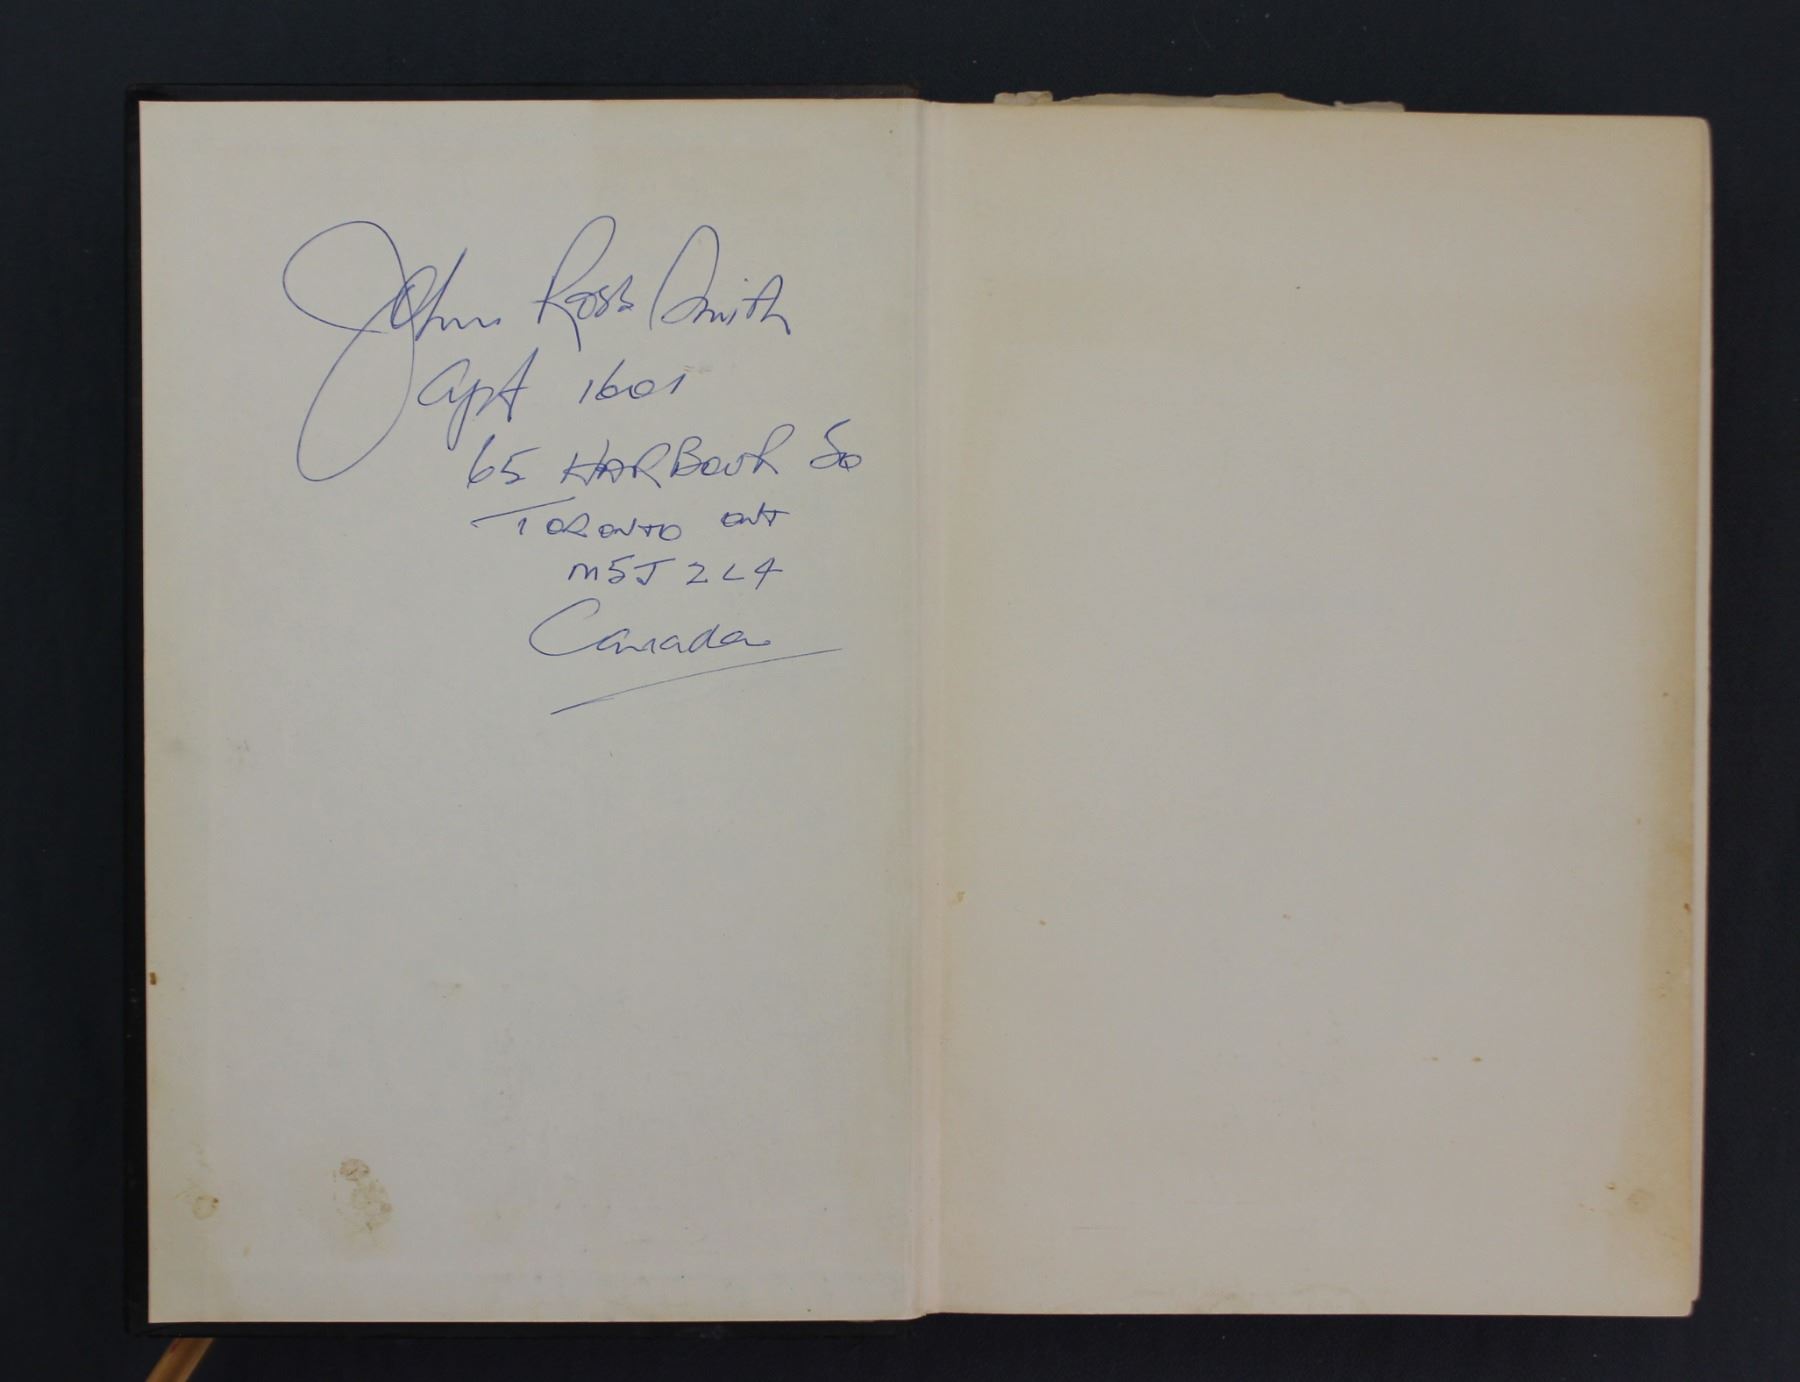 John Ross Smith
Apt 1601
65 HARBOUR SQ
TORONTO ONT
M5J 2L4
Canada